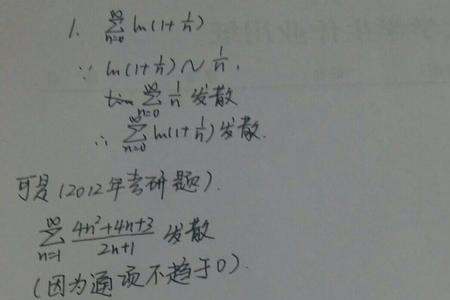 1. ∑_{n=0}^{∞} ln(1+1/n)
∵ ln(1+1/n) ~ 1/n,
lim ∑_{n=0}^{∞} 1/n 发散
∴ ∑_{n=0}^{∞} ln(1+1/n) 发散.
可是(2012年考研题).
∑_{n=1}^{∞} (4n²+4n+3)/(2n+1) 发散
(因为通项不趋于0).